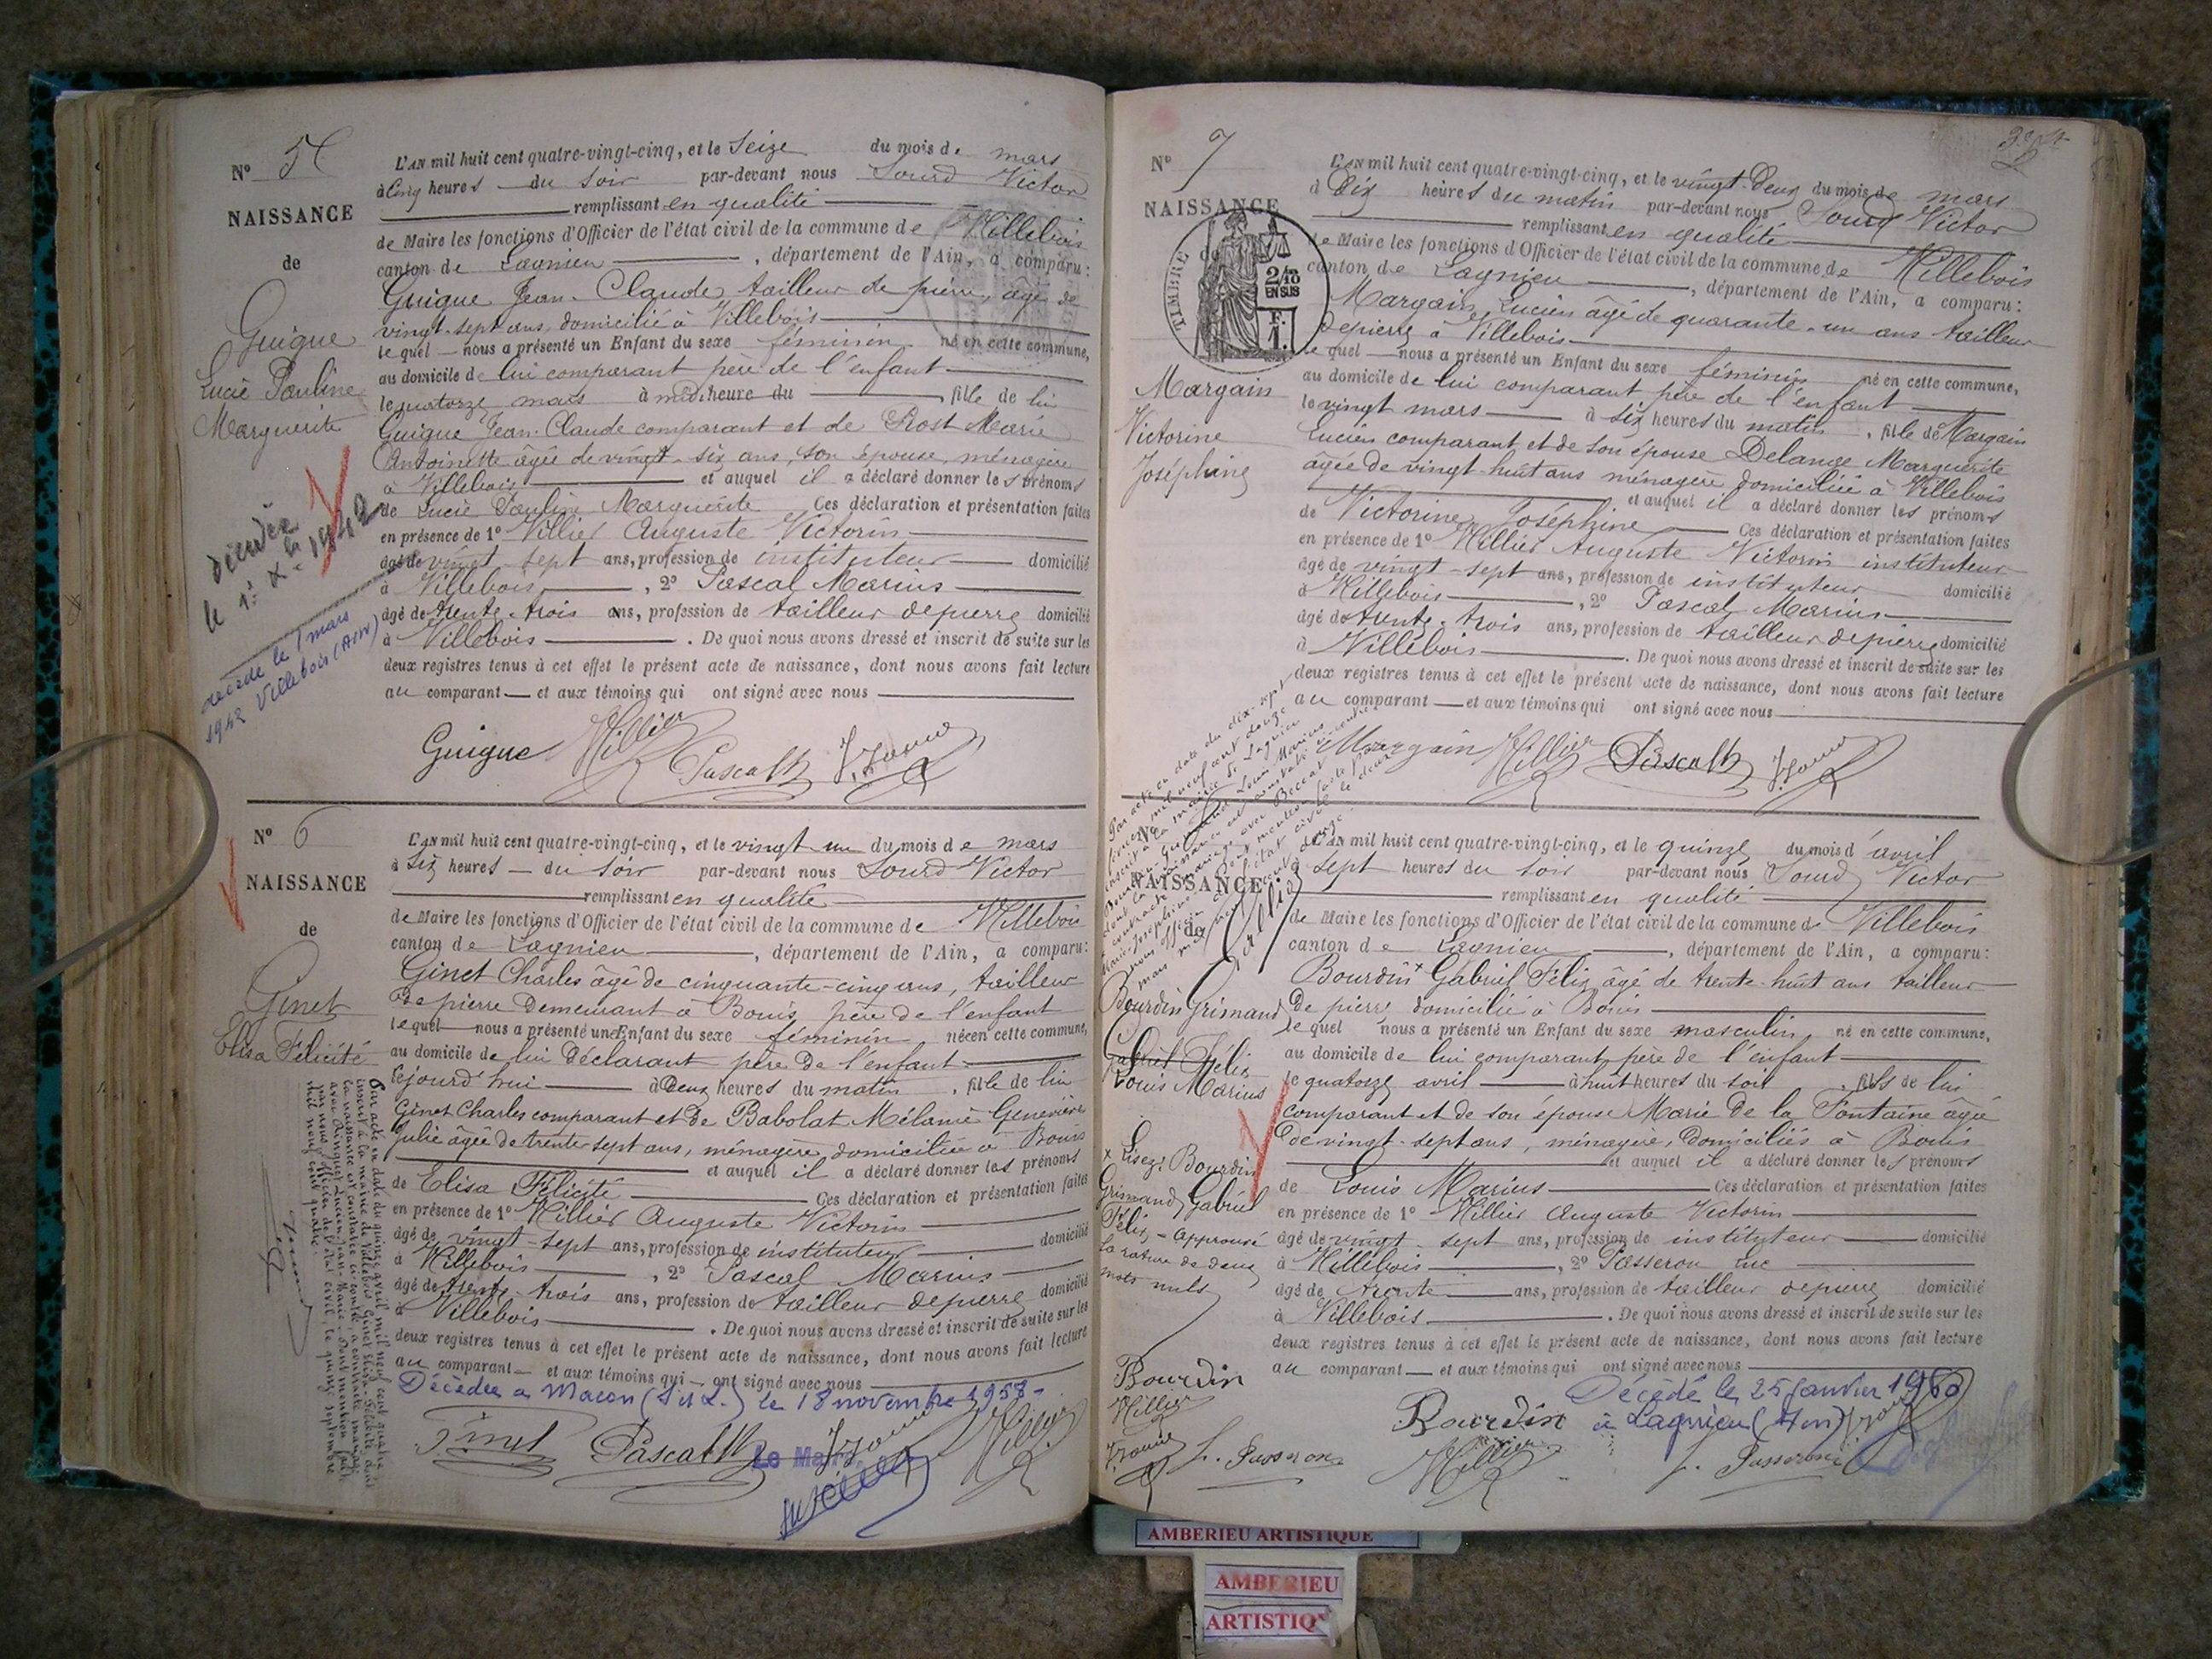 Nº 5
NAISSANCE
de
Guigue
Lucie Pauline
Marguerite
décédée
le 1er X - 1942
décédé le 1 mars
1942 Villebois (AIN)
L'AN mil huit cent quatre-vingt-cinq, et le Seize du mois de mars
à Cinq heures du soir par-devant nous Sourd Victor
remplissant en qualité
de Maire les fonctions d'Officier de l'état civil de la commune de Villebois
canton de Lagnieu, département de l'Ain, a comparu:
Guigue Jean-Claude tailleur de pierre, âgé de
vingt-sept ans, domicilié à Villebois
lequel nous a présenté un Enfant du sexe féminin né en cette commune,
au domicile de lui comparant père de l'enfant
le quatorze mars à midi heure du, fille de lui
Guigue Jean-Claude comparant et de Rost Marie
Antoinette âgée de vingt-six ans, son épouse, ménagère
à Villebois et auquel il a déclaré donner les prénoms
de Lucie Pauline Marguerite Ces déclaration et présentation faites
en présence de 1º Villier Auguste Victorin
âgé de vingt-sept ans, profession de instituteur domicilié
à Villebois, 2º Pascal Marius
âgé de trente-trois ans, profession de tailleur de pierre domicilié
à Villebois. De quoi nous avons dressé et inscrit de suite sur les
deux registres tenus à cet effet le présent acte de naissance, dont nous avons fait lecture
au comparant et aux témoins qui ont signé avec nous
Guigue Villier Pascal M V. Sourd
Nº 6
NAISSANCE
de
Ginet
Elisa Félicité
Par acte en date du quinze avril mil neuf cent quatre
inscrit à la mairie de Villebois, Ginet Elisa-Félicité dont
la naissance est constatée ci-contre, a contracté mariage
avec Lucien Jean-Marie. Dont mention faite
par nous, officier de l'état civil, le quinze septembre
mil neuf cent quatre.
L'AN mil huit cent quatre-vingt-cinq, et le vingt un du mois de mars
à six heures du soir par-devant nous Sourd Victor
remplissant en qualité
de Maire les fonctions d'Officier de l'état civil de la commune de Villebois
canton de Lagnieu, département de l'Ain, a comparu:
Ginet Charles âgé de cinquante-cinq ans, tailleur
de pierre demeurant à Bouis, père de l'enfant
lequel nous a présenté une Enfant du sexe féminin née en cette commune,
au domicile de lui déclarant père de l'enfant
cejourd'hui à Deux heures du matin, fille de lui
Ginet Charles comparant et de Babolat Mélanie Geneviève
Julie âgée de trente sept ans, ménagère domiciliée à Bouis
et auquel il a déclaré donner les prénoms
de Elisa Félicité Ces déclaration et présentation faites
en présence de 1º Villier Auguste Victorin
âgé de vingt-sept ans, profession de instituteur domicilié
à Villebois, 2º Pascal Marius
âgé de trente-trois ans, profession de tailleur de pierre domicilié
à Villebois. De quoi nous avons dressé et inscrit de suite sur les
deux registres tenus à cet effet le présent acte de naissance, dont nous avons fait lecture
au comparant et aux témoins qui ont signé avec nous
Décédée à Macon (S et L.) le 18 novembre 1958-
Ginet Pascal M V. Sourd Villier
Le Maire
Nº 7
NAISSANCE
de
TIMBRE
2/10
EN SUS
F.
1.
Margain
Victorine
Joséphine
L'AN mil huit cent quatre-vingt-cinq, et le vingt-Deux du mois de mars
à Dix heures du matin par-devant nous Sourd Victor
remplissant en qualité
de Maire les fonctions d'Officier de l'état civil de la commune de Villebois
canton de Lagnieu, département de l'Ain, a comparu:
Margain Lucien âgé de quarante-un ans tailleur
de pierre à Villebois
lequel nous a présenté un Enfant du sexe féminin né en cette commune,
au domicile de lui comparant père de l'enfant
le vingt mars à six heures du matin, fille de Margain
Lucien comparant et de son épouse Delange Marguerite
âgée de vingt-huit ans ménagère domiciliée à Villebois
et auquel il a déclaré donner les prénoms
de Victorine Joséphine Ces déclaration et présentation faites
en présence de 1º Villier Auguste Victorin instituteur
âgé de vingt-sept ans, profession de instituteur domicilié
à Villebois, 2º Pascal Marius
âgé de trente-trois ans, profession de tailleur de pierre domicilié
à Villebois. De quoi nous avons dressé et inscrit de suite sur les
deux registres tenus à cet effet le présent acte de naissance, dont nous avons fait lecture
au comparant et aux témoins qui ont signé avec nous
Margain Villier Pascal M V. Sourd
Nº
NAISSANCE
de
Par acte en date du dix-sept
février mil neuf cent douze
inscrit à la mairie de Lagnieu
Bourdin-Grimand Louis Marius
dont la naissance est constatée ci-contre
a contracté mariage avec
Marie-Joséphine Dont mention faite par
nous officier de l'état civil le deux
mars mil neuf cent douze
Bourdin Grimand
Gabriel Félix
Louis Marius
x Lisez: Bourdin
Grimand Gabriel
Félix - Approuvé
la rature de deux
mots nuls
Bourdin
Villier
V. Sourd
L. Passeron
L'AN mil huit cent quatre-vingt-cinq, et le quinze du mois d'avril
à sept heures du soir par-devant nous Sourd Victor
remplissant en qualité
de Maire les fonctions d'Officier de l'état civil de la commune de Villebois
canton de Lagnieu, département de l'Ain, a comparu:
Bourdin x Gabriel Félix âgé de trente-huit ans tailleur
de pierre domicilié à Bouis
lequel nous a présenté un Enfant du sexe masculin né en cette commune,
au domicile de lui comparant père de l'enfant
le quatorze avril à huit heures du soir, fils de lui
comparant et de son épouse Marie De la Fontaine âgée
de vingt-sept ans, ménagère, domiciliés à Bouis
et auquel il a déclaré donner les prénoms
de Louis Marius Ces déclaration et présentation faites
en présence de 1º Villier Auguste Victorin
âgé de vingt-sept ans, profession de instituteur domicilié
à Villebois, 2º Passeron Luc
âgé de trente ans, profession de tailleur de pierre domicilié
à Villebois. De quoi nous avons dressé et inscrit de suite sur les
deux registres tenus à cet effet le présent acte de naissance, dont nous avons fait lecture
au comparant et aux témoins qui ont signé avec nous
Décédé le 25 janvier 1960
à Lagnieu (Ain)
Bourdin V. Sourd
Villier L. Passeron
AMBERIEU ARTISTIQUE
AMBERIEU
ARTISTIQ